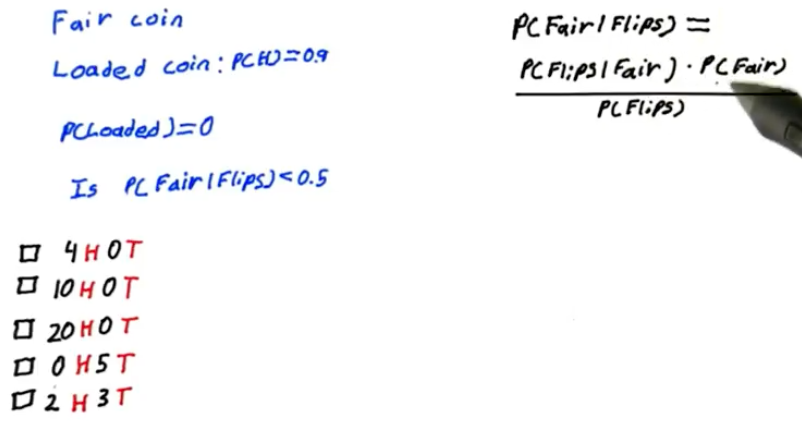 Fair coin
Loaded coin: P(H)=0.9
P(Loaded)=0
Is P(Fair|Flips)<0.5
4 H 0 T
10 H 0 T
20 H 0 T
0 H 5 T
2 H 3 T
P(Fair|Flips)=
P(Flips|Fair) · P(Fair)
P(Flips)